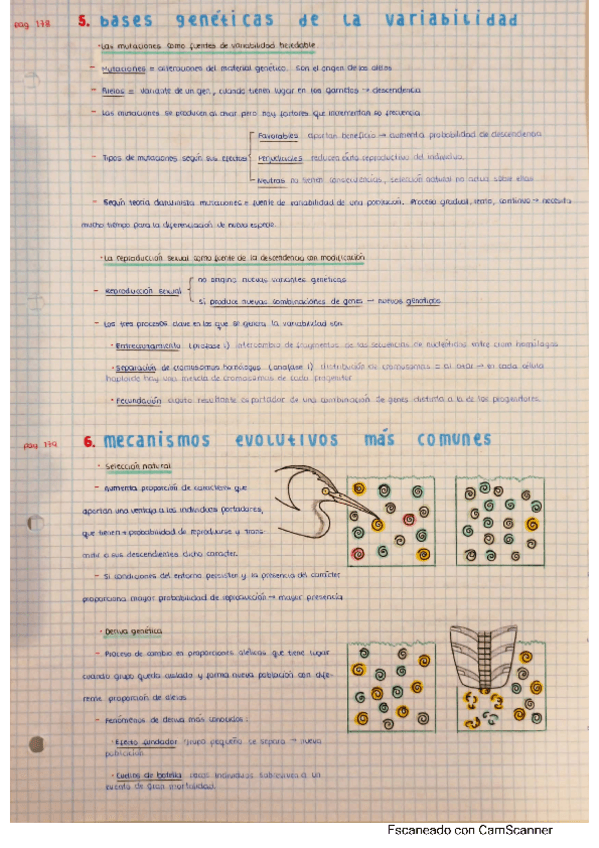 pag. 178
5. bases genéticas de la variabilidad
· Las mutaciones como fuentes de variabilidad heredable.
- Mutaciones = alteraciones del material genético. Son el origen de los alelos
- Alelos = variante de un gen, cuando tienen lugar en los gametos → descendencia
- Las mutaciones se producen al azar pero hay factores que incrementan su frecuencia.
Favorables aportan beneficio → aumenta probabilidad de descendencia
- Tipos de mutaciones según sus efectos Perjudiciales reducen éxito reproductivo del individuo.
Neutras no tienen consecuencias, selección natural no actúa sobre ellas
- Según teoría darwinista mutaciones = fuente de variabilidad de una población. Proceso gradual, lento, continuo → necesita
mucho tiempo para la diferenciación de nueva especie.
· La reproducción sexual como fuente de la descendencia con modificación
no origina nuevas variantes genéticas
- Reproducción sexual
si produce nuevas combinaciones de genes → nuevos genotipos
- Los tres procesos clave en los que se genera la variabilidad son
· Entrecruzamiento (profase I) intercambio de fragmentos de las secuencias de nucleótidos entre crom homólogos
· Separación de cromosomas homólogos (anafase I) distribución de cromosomas al azar → en cada célula
haploide hay una mezcla de cromosomas de cada progenitor
· Fecundación cigoto resultante es portador de una combinación de genes distinta a la de los progenitores.
pag. 179
6. mecanismos evolutivos más comunes
· Selección natural
- Aumenta proporción de caracteres que
aportan una ventaja a los individuos portadores,
que tienen + probabilidad de reproducirse y trans-
mitir a sus descendientes dicho carácter.
- Si condiciones del entorno persisten y la presencia del carácter
proporciona mayor probabilidad de reproducción → mayor presencia
· Deriva genética
- Proceso de cambio en proporciones alélicas que tiene lugar
cuando grupo queda aislado y forma nueva población con dife-
rente proporción de alelos
- Fenómenos de deriva más conocidos:
· Efecto fundador grupo pequeño se separa → nueva
población
· Cuello de botella pocos individuos sobreviven a un
evento de gran mortalidad.
Escaneado con CamScanner